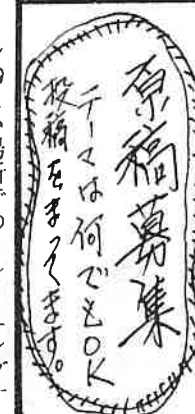 原稿募集
テーマは何でもOK
投稿をまってます。